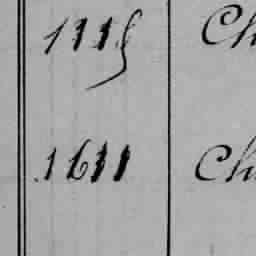 1115 Ch
1611 Ch